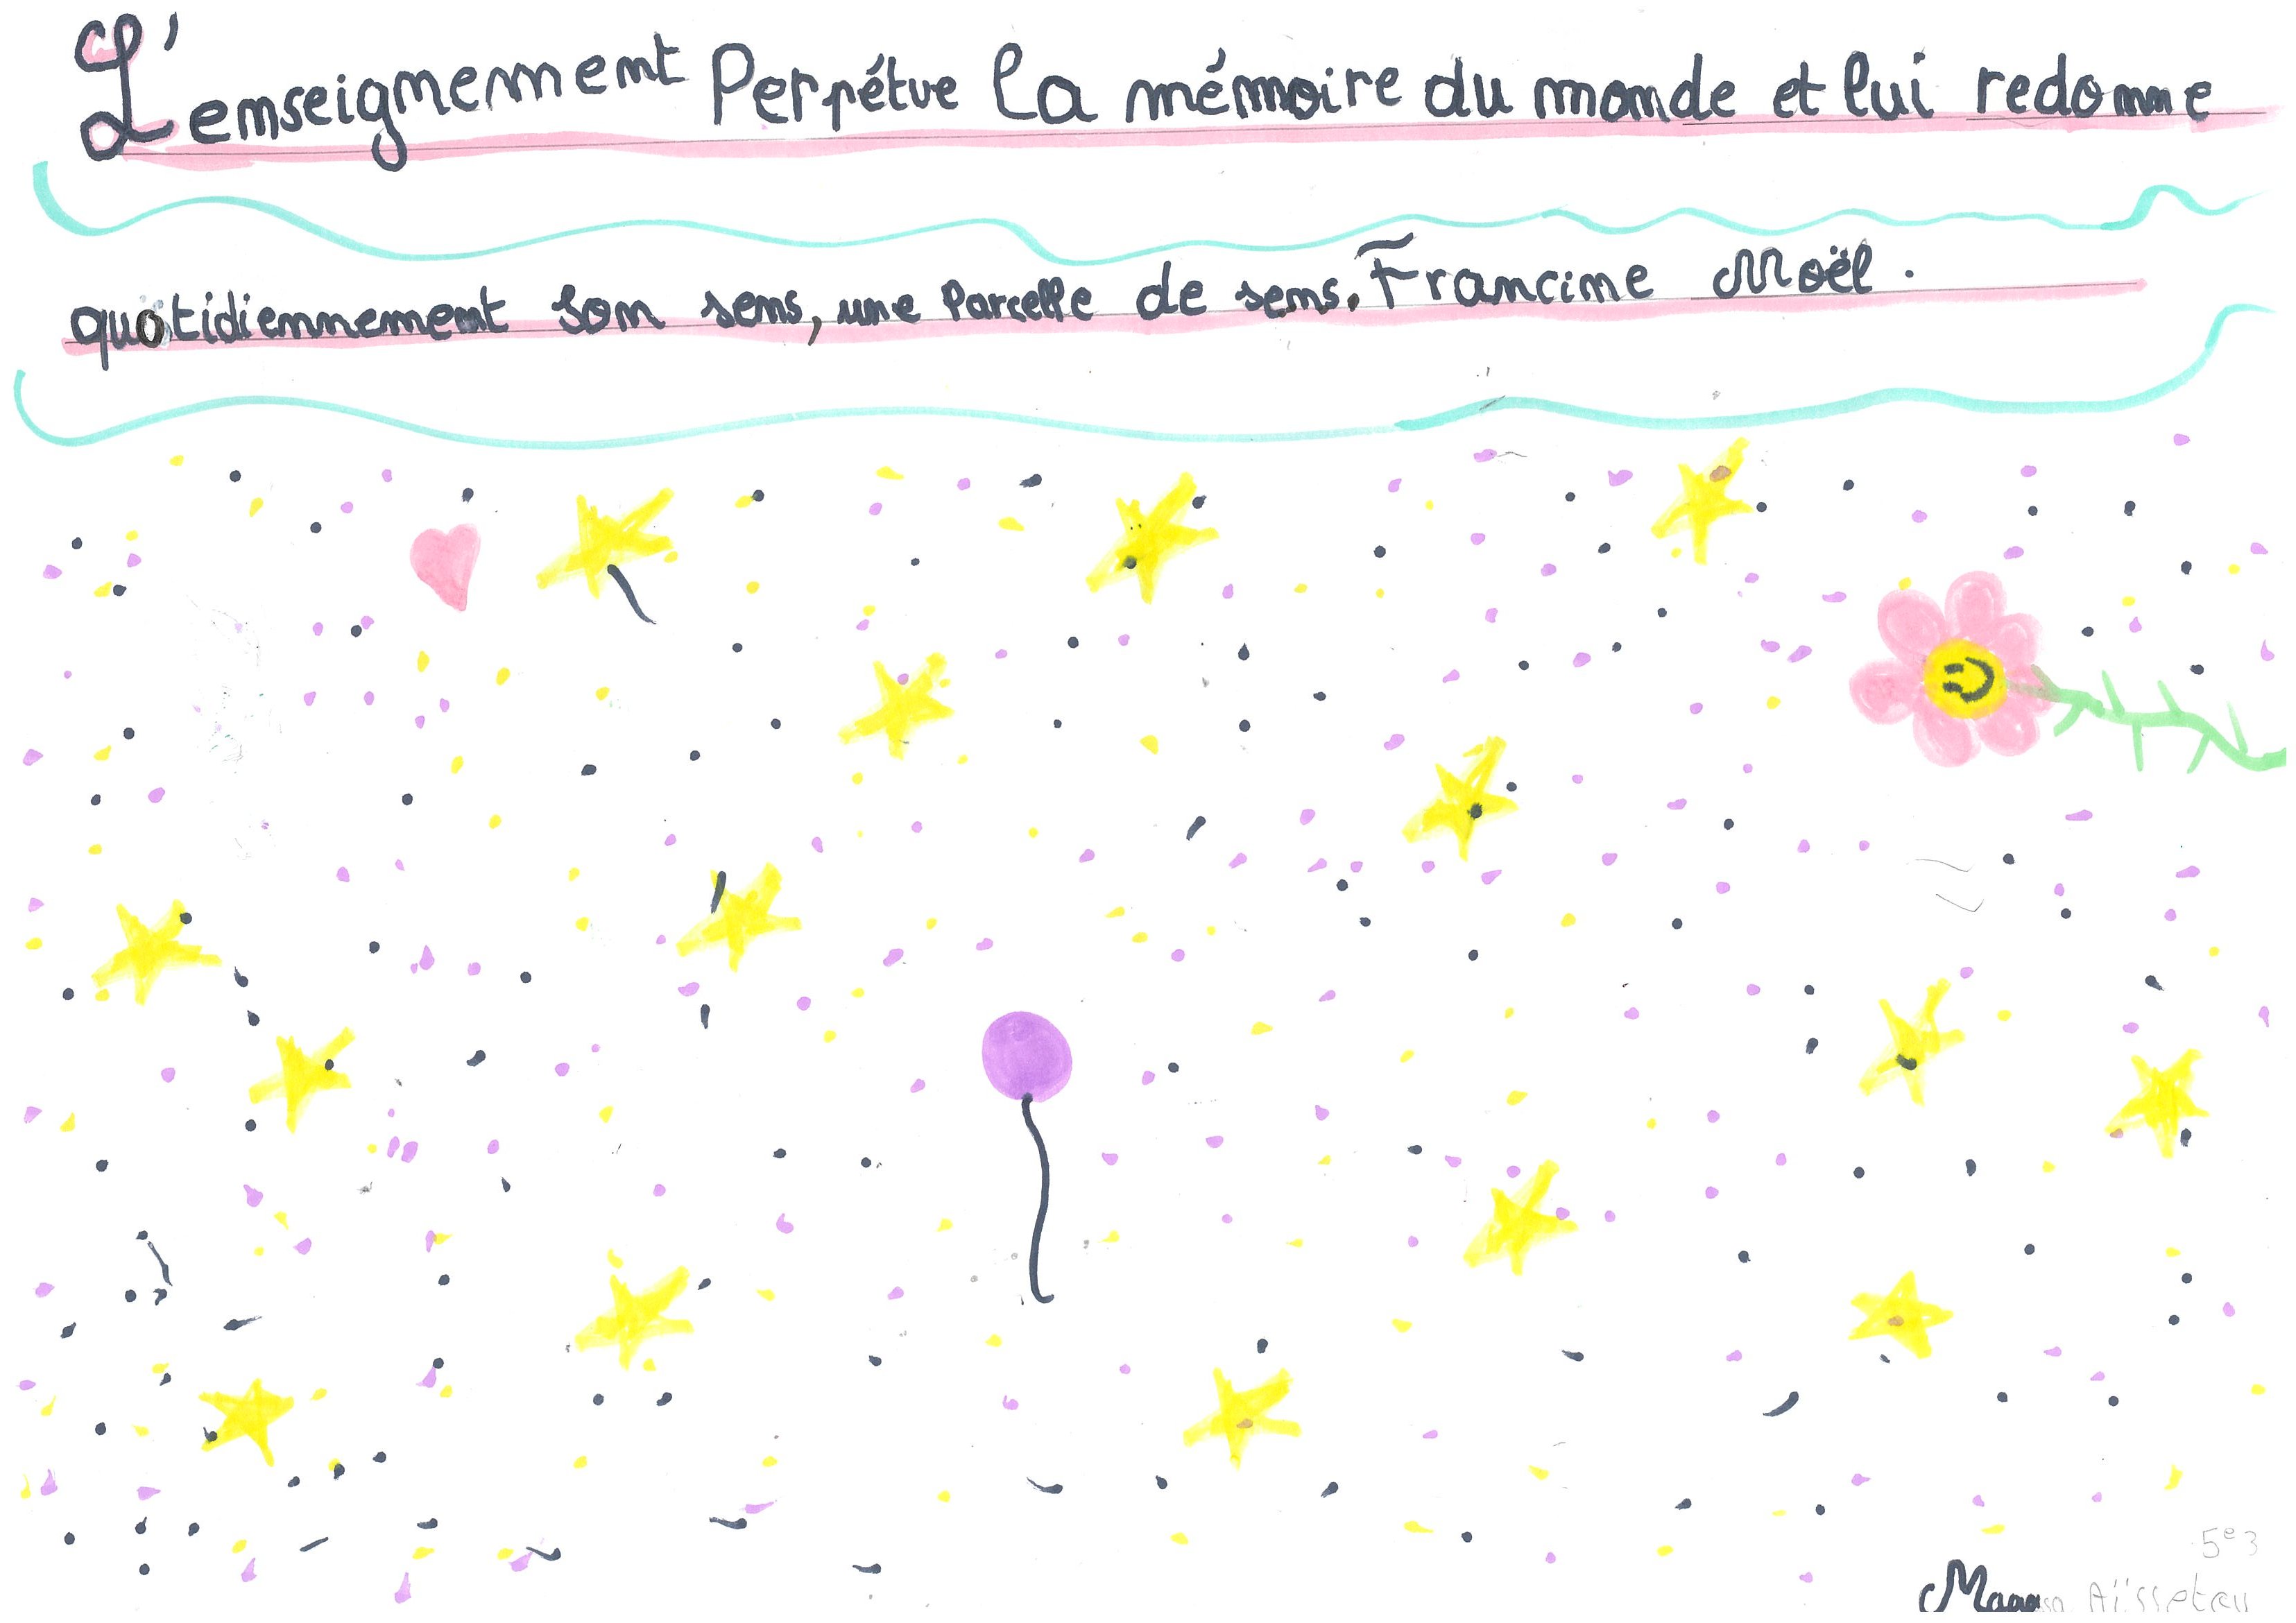 L'enseignement Perpétue la mémoire du monde et lui redonne
quotidiennement son sens, une Parcelle de sens. Francine Noël.
5e3